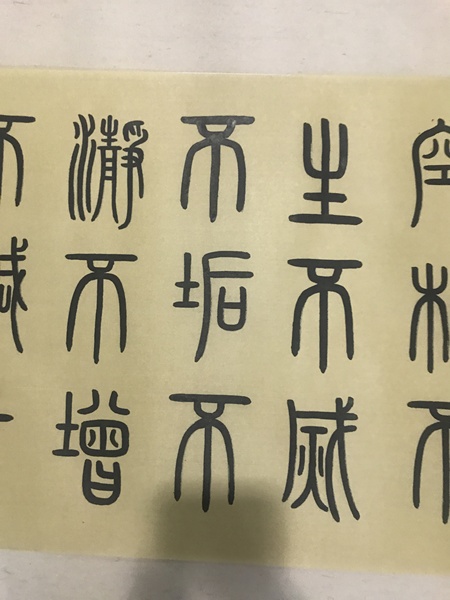 空相不
生不烕
不垢不
瀞不增
不減